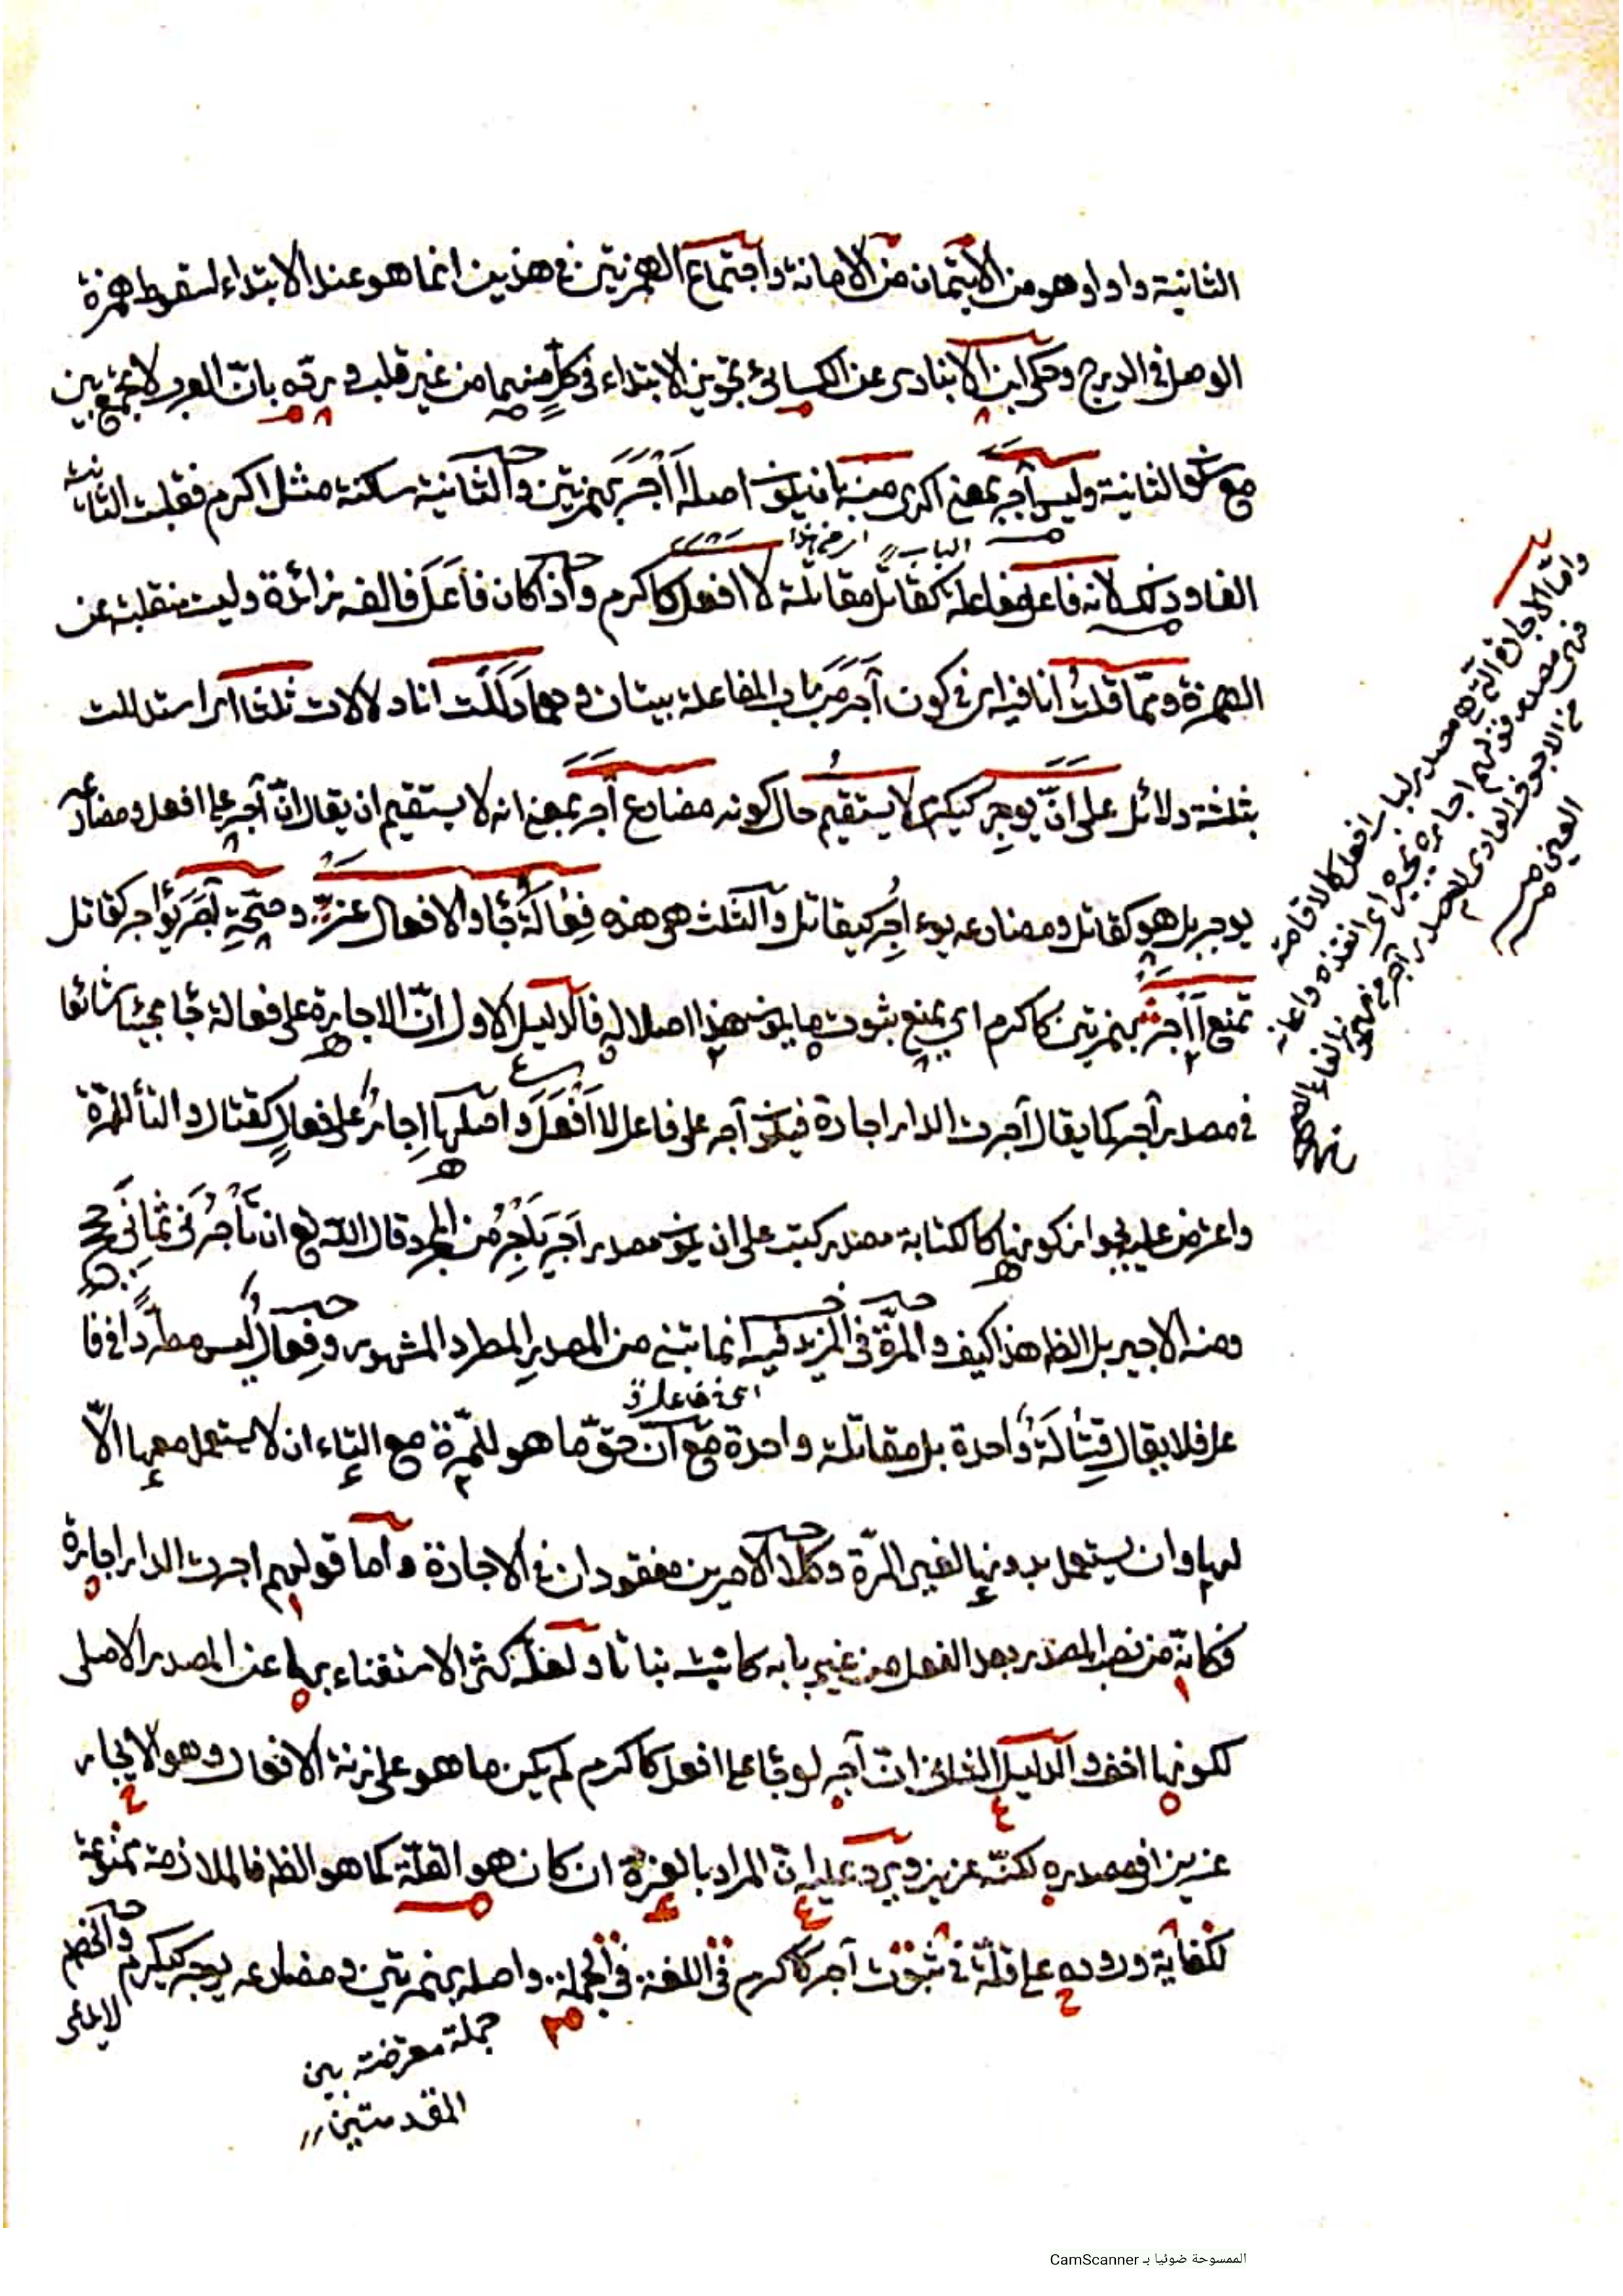 الثانية واوا وهو من الايتمان من الامانة واجتماع الهمزتين في هذين انما هو عند الابتداء لسقوط همزة
الوصل في الدرج وحكى ابن الانبارى عن الكسائي تجويز الابتداء في كلٍّ منهما من غير قلب و يرده بانّ العرب لا تجمع بين
مع سكون الثانية وليس آجر بمعنى اكرى منه بان يكون اصله أَأْجَرَ بهمزتين والثانية ساكنة مثل اكرم فقلبت الثانية
الفا وذلك لانه فاعل مفاعلة كقاتل مقاتلة لا افعل كاكرم واذا كان فاعَلَ فالفه زائدة وليست منقلبة عن
اى من هذا الباب
الهمزة وممّا قلتُ انا فيه اى في كون آجر من باب المفاعلة بيتان و هما دَلَلْت انا دلالات ثلثا اى استدللت
بثلثة دلائل على انّ يوجِر كيكرم لا يستقيم حال كونه مضارع آجر بمعنى انه لا يستقيم ان يقال انّ آجر على افعل ومضارعه
يوجر بل هو كقاتل ومضارعه يوءاجِر كيقاتل والثلث هى هذه فِعالَةُ جا والافعال عزّ وصحّة آجَرَ يؤاجر كقاتل
تمنع أَأْجَرَ بهمزتين كاكرم اى يمنع ثبوت ما يكون هذا اصلا له فالدليل الاول انّ الاجارة على فعالة جا مجيئا شائعا
في مصدر آجر كما يقال آجرت الدار اجارة فيكون آجر على فاعل لا أَفْعَلَ واصلها إجارٌ على فعالٍ كقتال والتأ للمرّة
واعترض عليه بجواز كونها كالكتابة مصدر كتب على ان يكون مصدر اَجَرَ يَأْجُرُ من المجرد قال الله تع ان تَأْجُرَنى ثَمانَى حجج
ومنه الاجير بل الظ هذا كيف والمرّة في المزيد فيه انما تبنى من المصدر المطرد المشهور وفِعالٌ ليس مطّردا في فا
عل فلا يقال قِتالَةً واحدة بل مقاتلة واحدة مع انّ حقّ ما هو للمرّة مع التاء ان لا يستعمل معها الّا
اى في فاعل
لها وان يستعمل بدونها لغير المرّة وكلا الامرين مفقودان في الاجارة واما قولهم اجرت الدار اجارة
فكانّه من نصب المصدر بعد الفعل من غير بابه كانبت نباتا و لعلّه كثر الاستغناء بها عن المصدر الاصلى
لكونها اخف والدليل الثانى انّ آجر لو جا على افعل كاكرم لم يكن ما هو على زنة الافعال وهو الايجار
عزيزا في مصدره لكنّه عزيز ويرد عليه انّ المراد بالعزة ان كان هو القلّة كما هو الظ فالملازمة ممنوعة
لكفاية وروده على قلّة في ثبوت آجر كاكرم في اللغة في الجملة واصله بهمزتين و مضارعه يوجر كيكرم والخصم
جملة معترضة بين
المقدمتين
واما الاجازة التى هى مصدر لباب افعل كالاقامة
العين